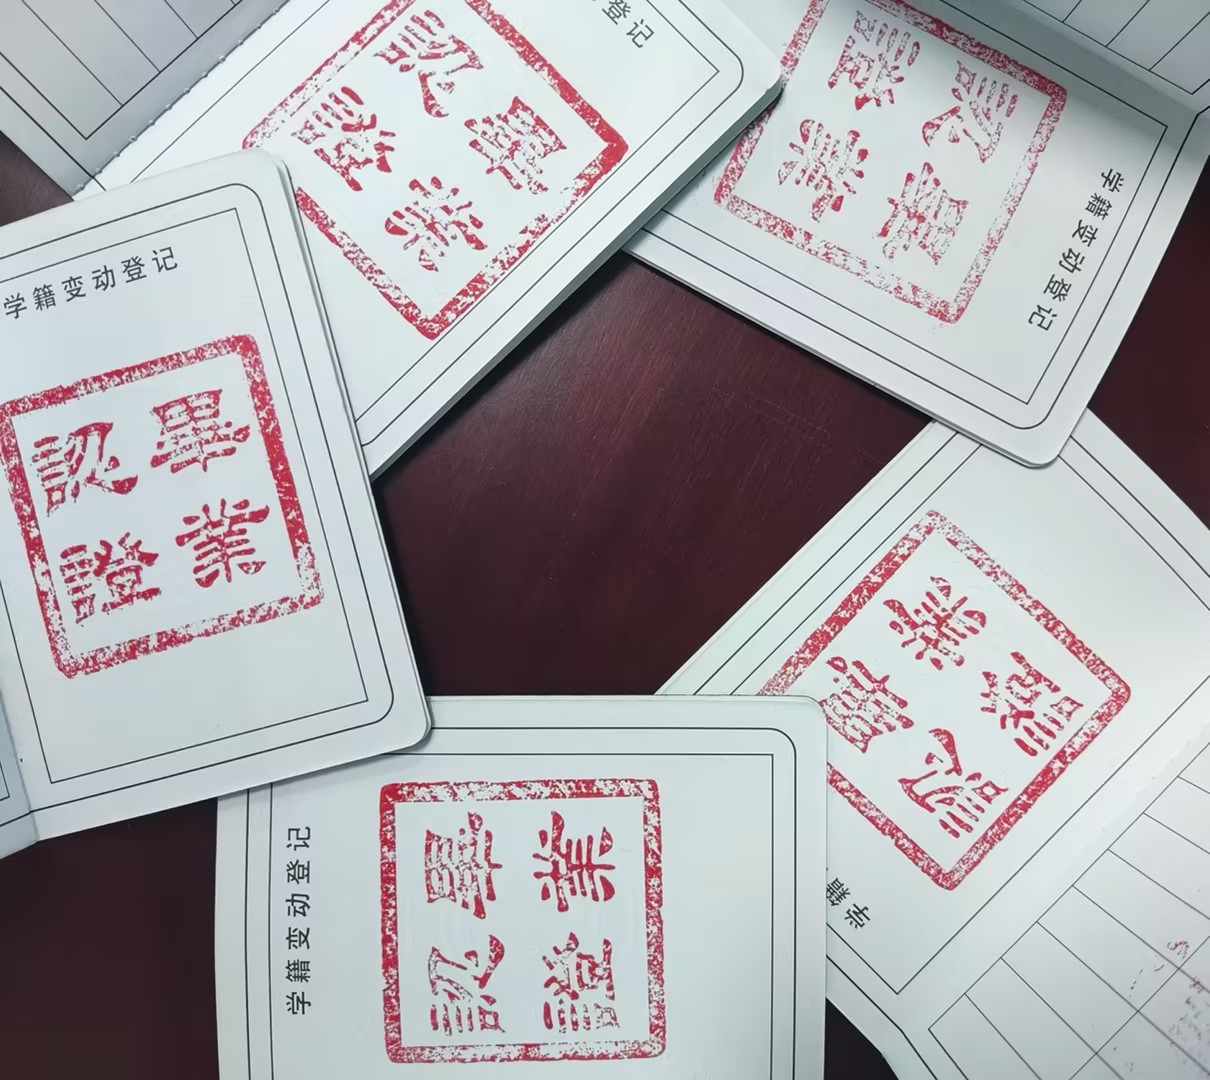 登记
畢業
認證
学籍变动登记
畢業
認證
学籍变动登记
畢業
認證
学籍变动登记
畢業
認證
学籍
畢業
認證